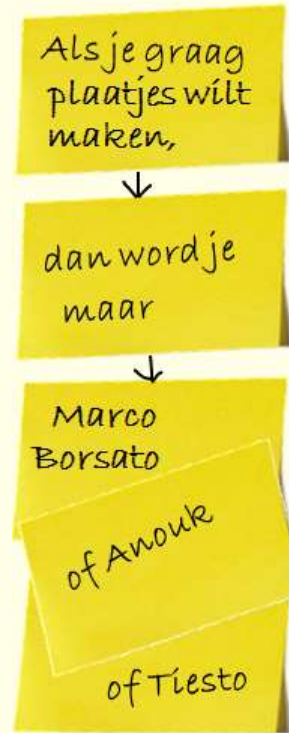 Als je graag
plaatjes wilt
maken,
dan word je
maar
Marco
Borsato
of Anouk
of Tiesto